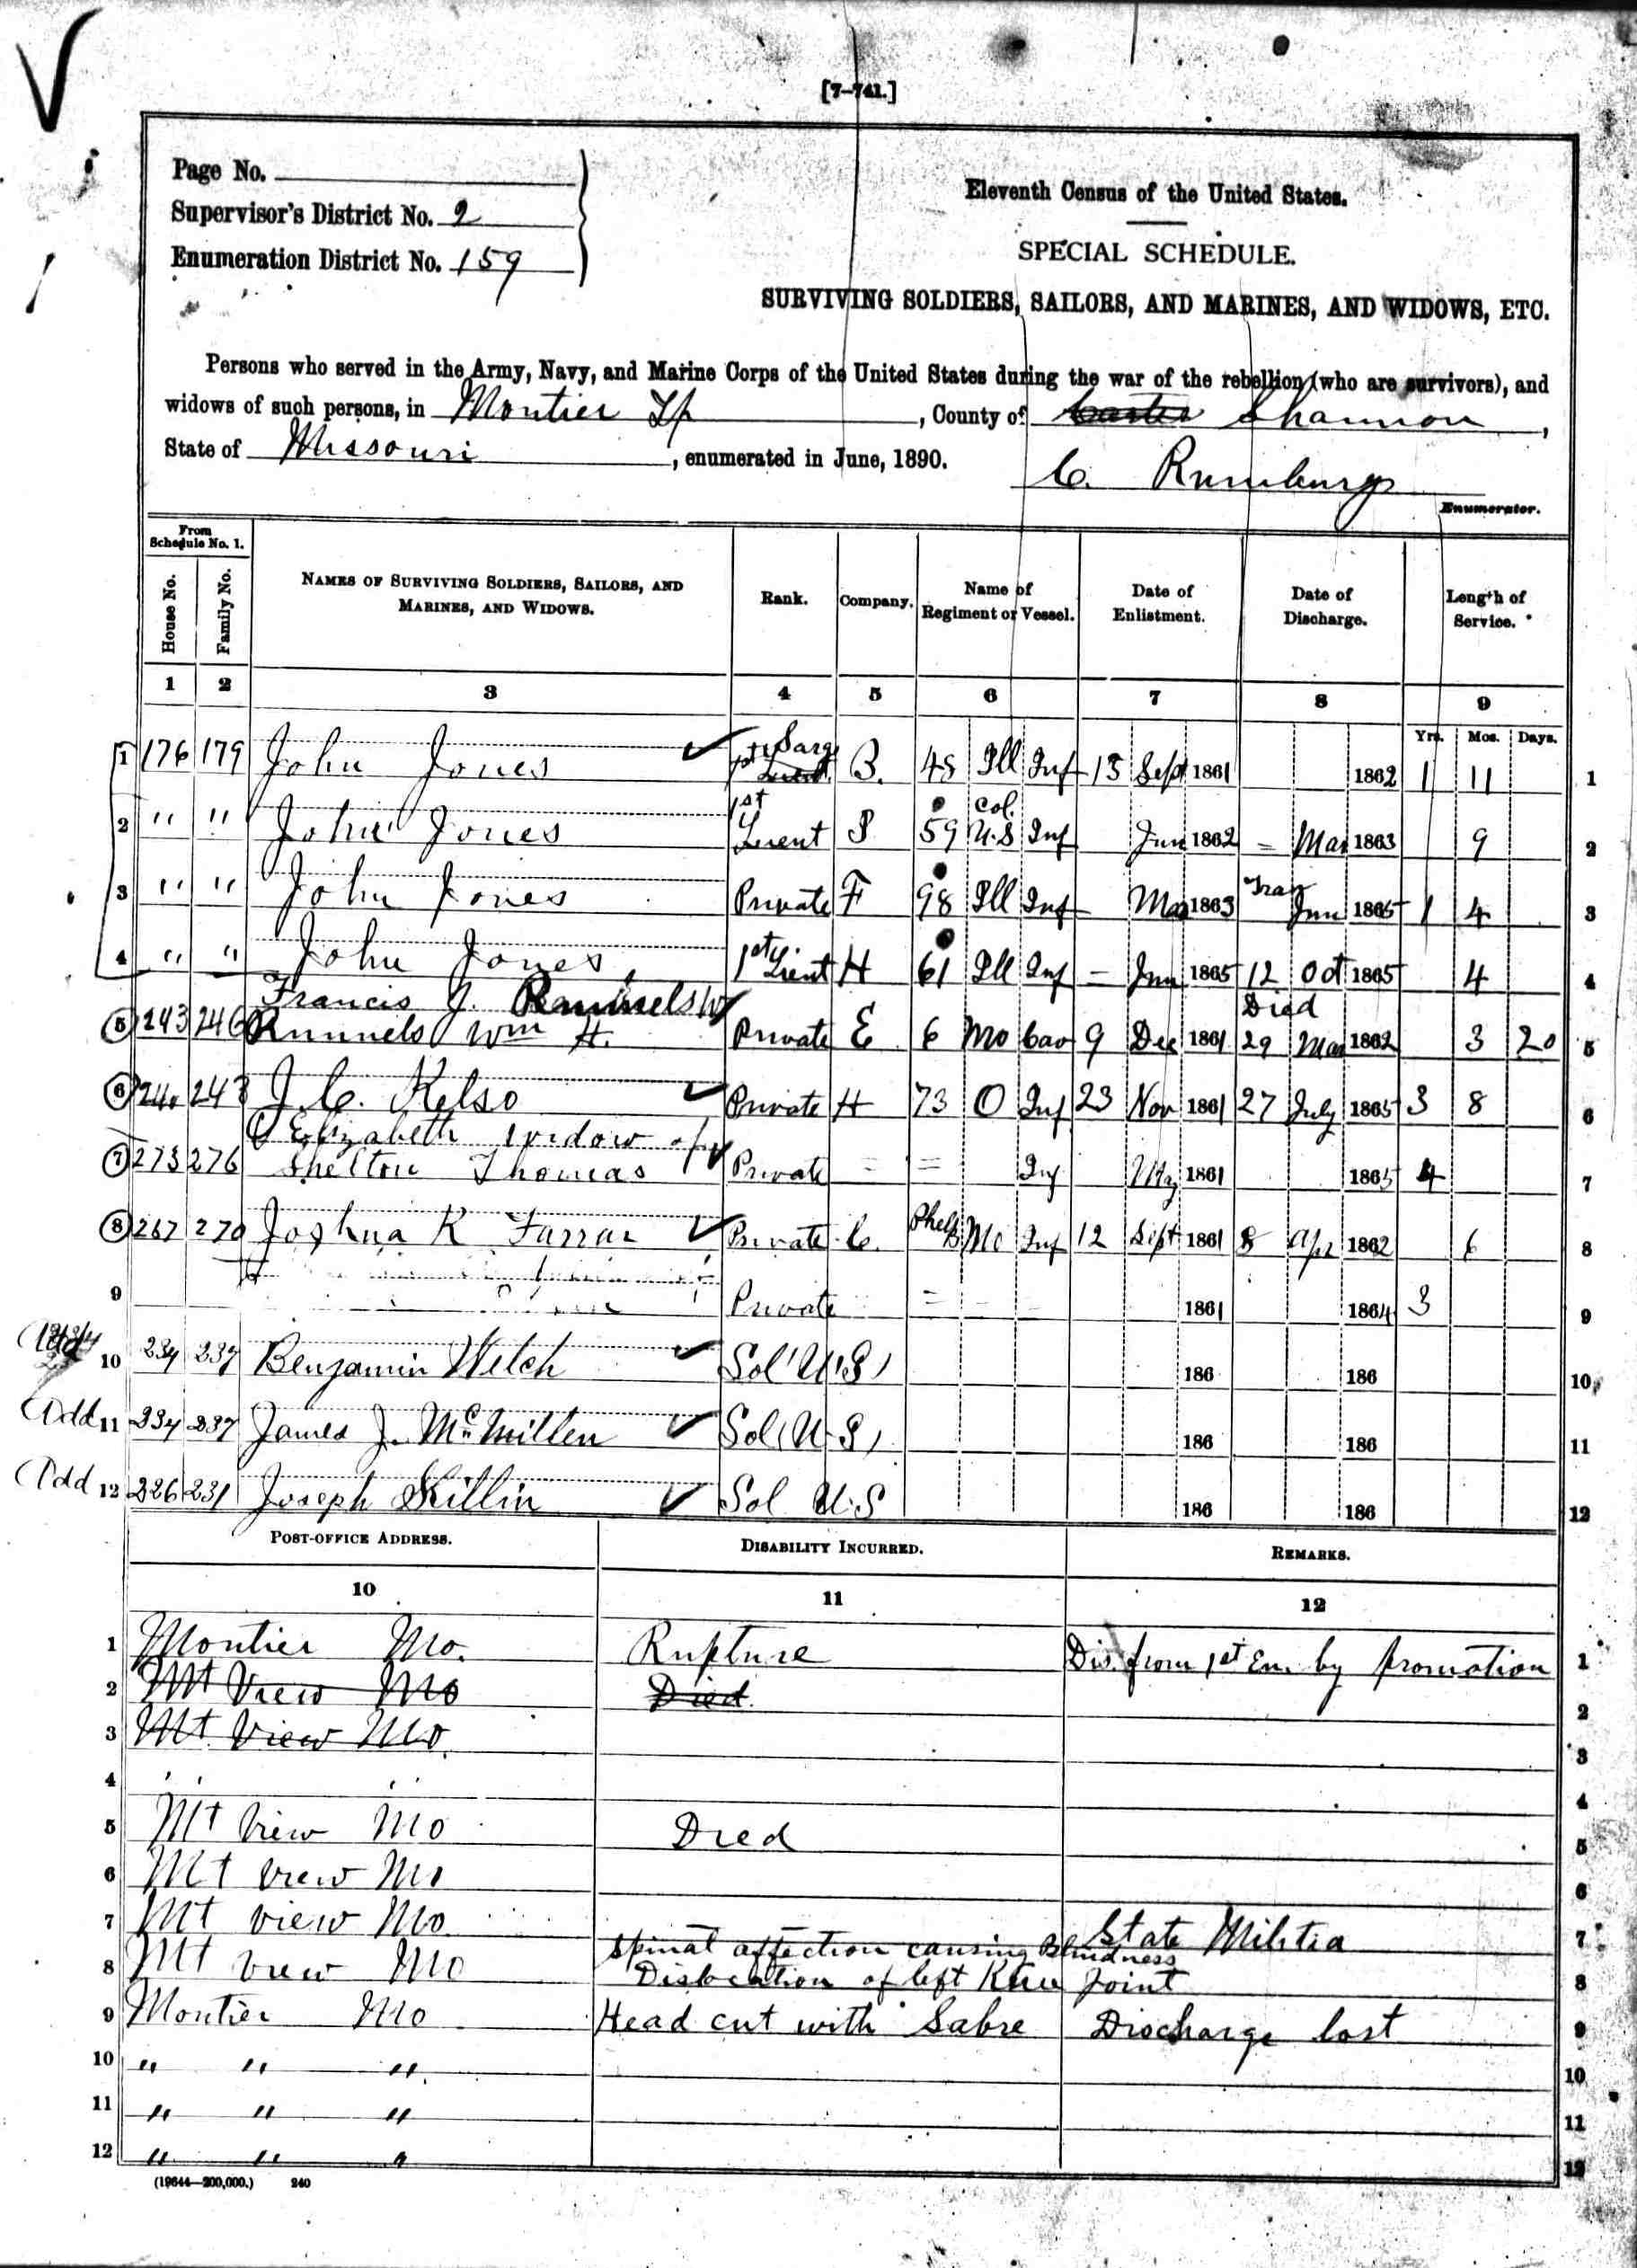 [7-741.]
Page No.
Supervisor's District No. 2
Enumeration District No. 159
Eleventh Census of the United States.
SPECIAL SCHEDULE.
SURVIVING SOLDIERS, SAILORS, AND MARINES, AND WIDOWS, ETC.
Persons who served in the Army, Navy, and Marine Corps of the United States during the war of the rebellion (who are survivors), and
widows of such persons, in Montier Tp, County of Carter Shannon,
State of Missouri, enumerated in June, 1890.
C. Rumburg
Enumerator.
From Schedule No. 1.
House No. Family No. NAMES OF SURVIVING SOLDIERS, SAILORS, AND MARINES, AND WIDOWS. Rank. Company. Name of Regiment or Vessel. Date of Enlistment. Date of Discharge. Length of Service.
1 2 3 4 5 6 7 8 9
Yrs. Mos. Days.
Sarg
1 176 179 John Jones 1st Lieut B. 48 Ill Inf 15 Sept 1861 1862 1 11 1
1st col.
2 " " John Jones Lieut 59 U.S Inf Jun 1862 = Mar 1863 9 2
3 " " John Jones Private F 98 Ill Inf Mar 1863 Tray Jun 1865 1 4 3
4 " " John Jones 1st Lieut H 61 Ill Inf - Jun 1865 12 Oct 1865 4 4
Francis J. Runnels W Died
5 243 246 Runnels Wm H. Private E 6 Mo Cav 9 Dec 1861 29 Mar 1862 3 20 5
6 243 J. C. Kelso Private H 73 O Inf 23 Nov 1861 27 July 1865 3 8 6
Elizabeth widow of
7 273 276 Shelton Thomas Private = = Inf May 1861 1865 4 7
8 267 270 Joshua K Farrar Private C. Phelps Mo Inf 12 Sept 1861 8 Apr 1862 6 8
9 Private = - - 1861 1864 3 9
10 234 237 Benjamin Welch Sol U S 186 186 10
Add 11 234 237 James J. McMillen Sol U S 186 186 11
Add 12 226 231 Joseph Killin Sol U.S 186 186 12
POST-OFFICE ADDRESS. DISABILITY INCURRED. REMARKS.
10 11 12
1 Montier Mo. Rupture Dis. from 1st En. by promotion 1
2 Mt View Mo Died 2
3 Mt View Mo. 3
4 " " 4
5 Mt View Mo Died 5
6 Mt View Mo 6
7 Mt View Mo. State Militia 7
Spinal affection causing Blindness
8 Mt View Mo Dislocation of left Knee Joint 8
9 Montier Mo Head cut with Sabre Discharge lost 9
10 " " " 10
11 " " " 11
12 " " " 12
(19644—200,000.) 240